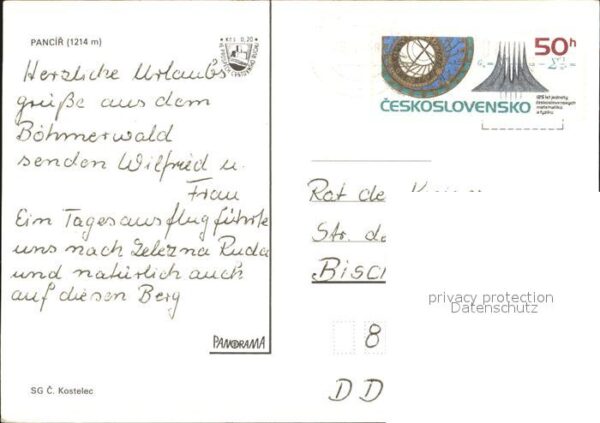 PANCÍŘ (1214 m)
Kčs 0,20
Herzliche Urlaubs
grüße aus dem
Böhmerwald
senden Wilfried u.
Frau
Ein Tagesausflug führte
uns nach Železna Ruda
und natürlich auch
auf diesen Berg
PANORAMA
SG Č. Kostelec
50h
ČESKOSLOVENSKO
125 let jednoty
československých
matematiků
a fyziků
Rat de
Str. de
Bisc
8
DD
privacy protection
Datenschutz